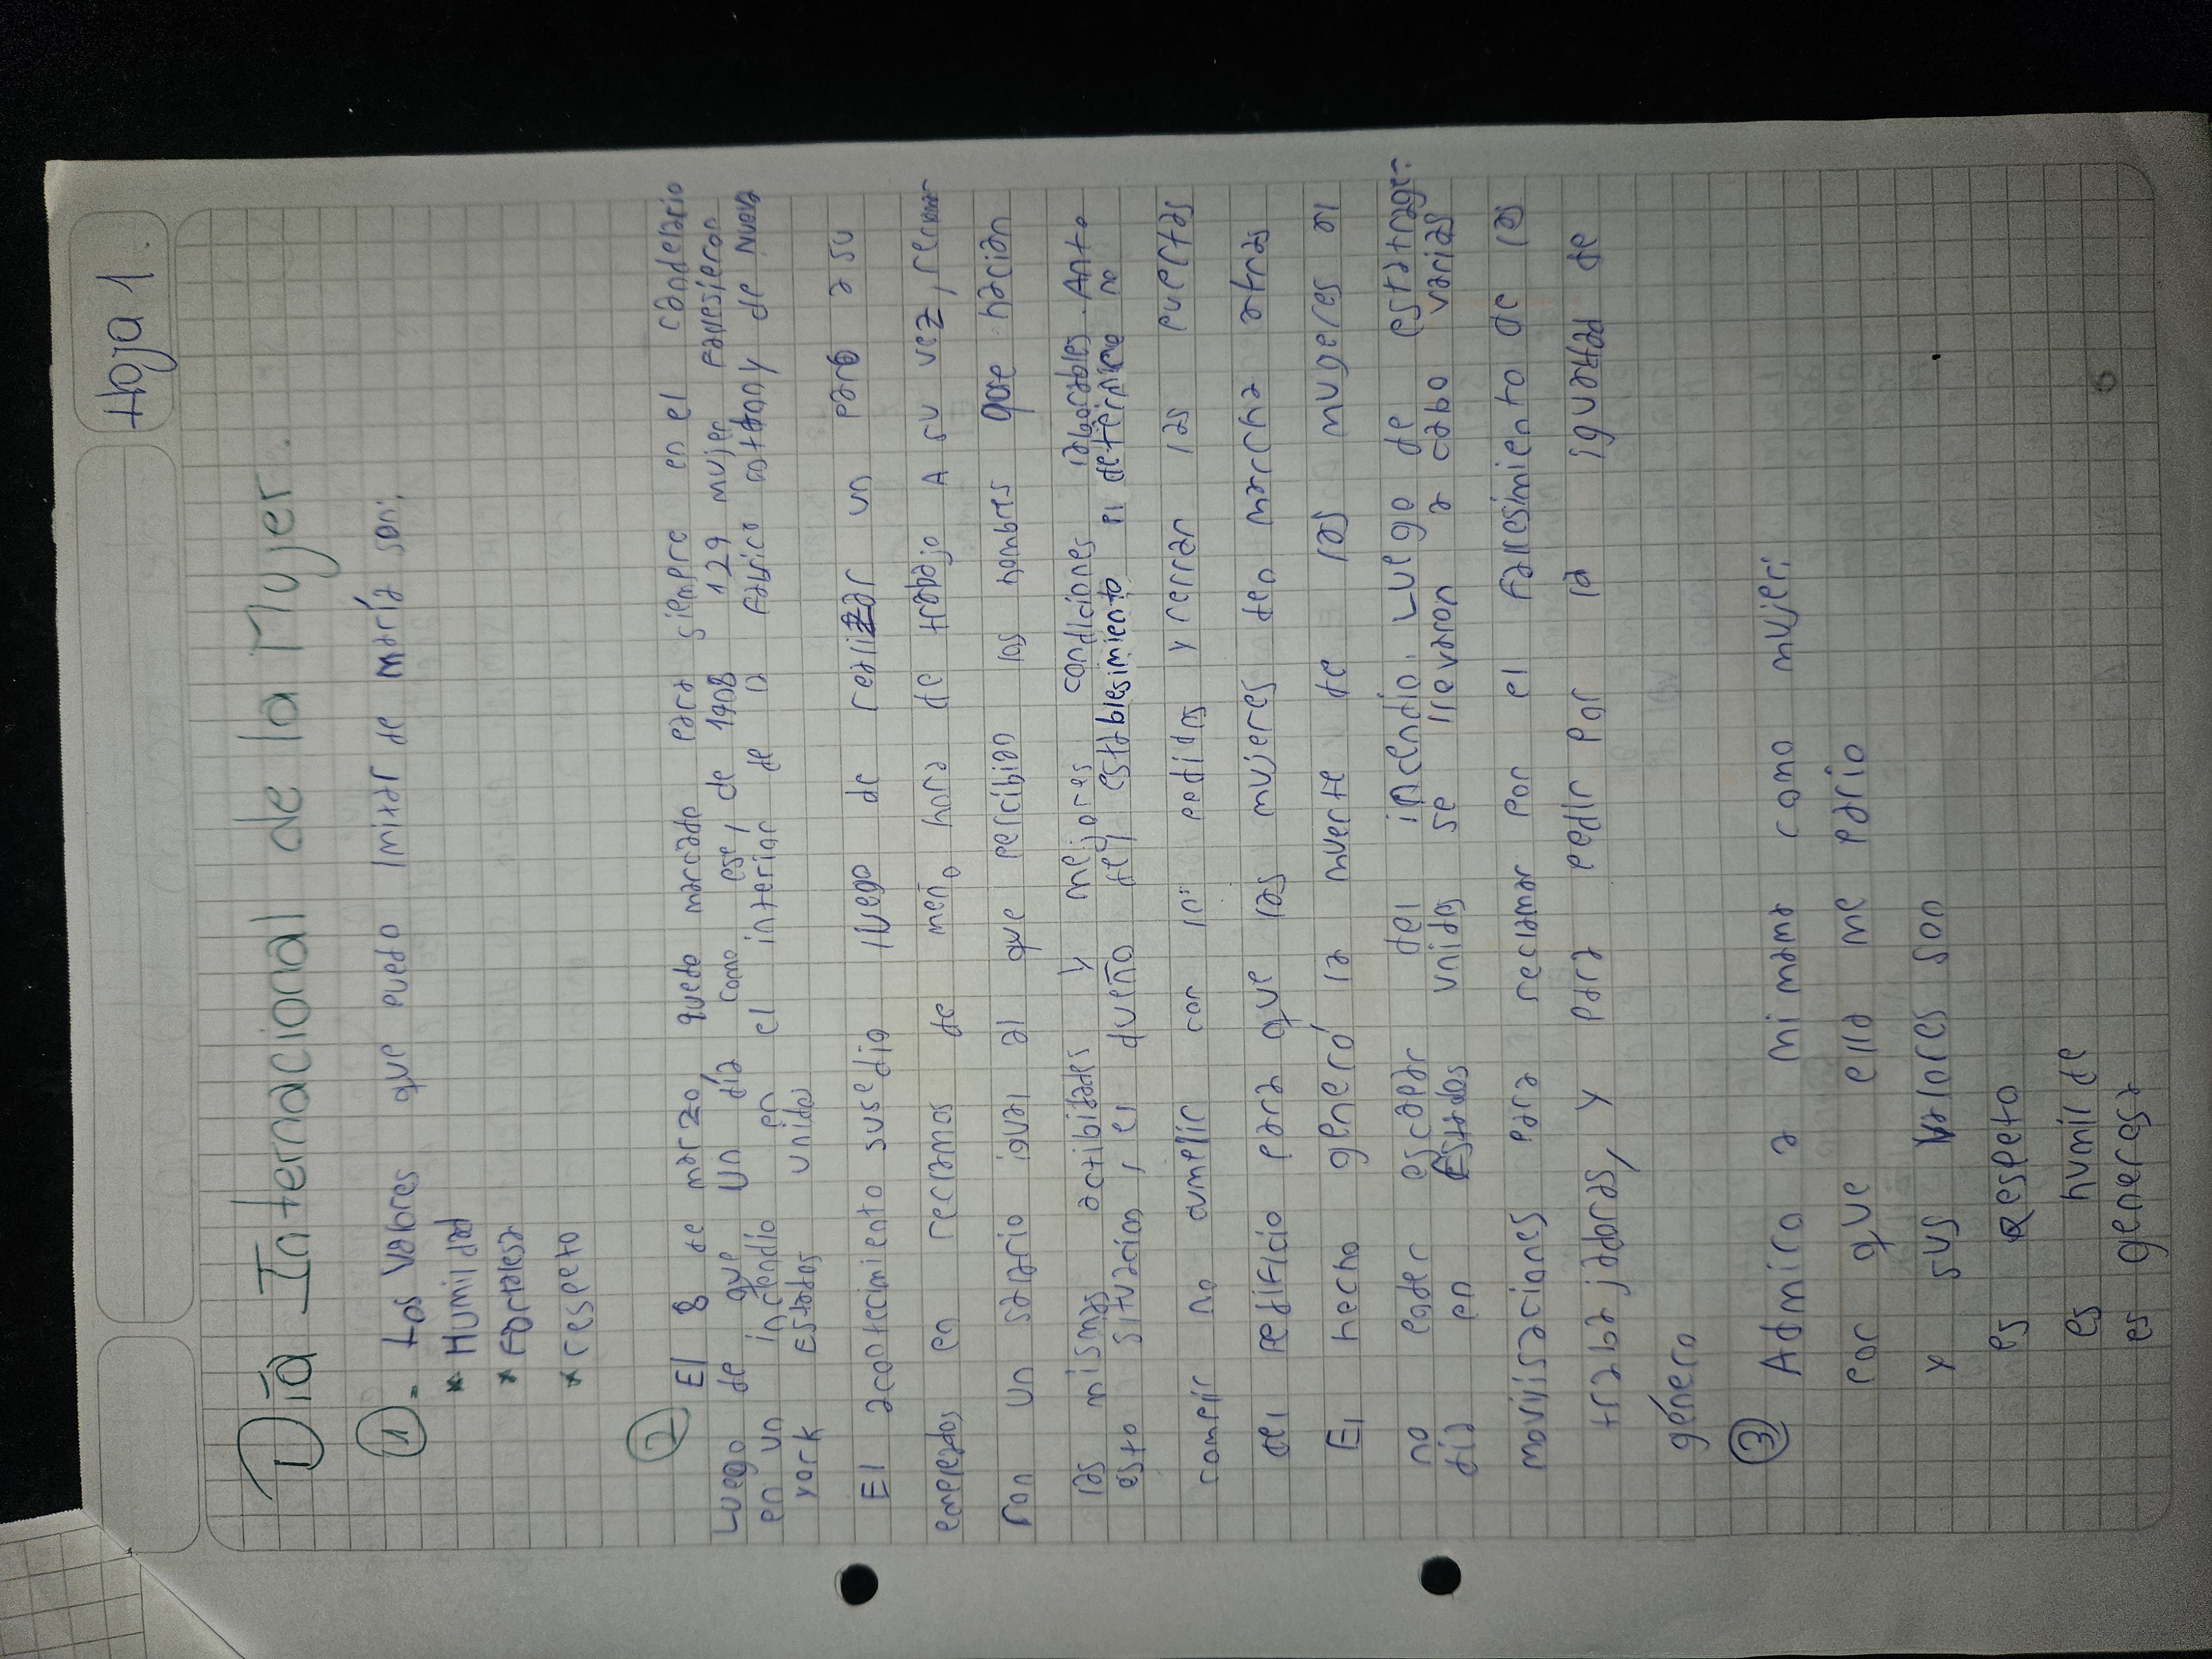 Hoja 1.
Día Internacional de la Mujer.
1 - Los Valores que puedo imitar de maría son:
* Humildad
* Fortalesa
* respeto
2 El 8 de marzo quedo marcado para siempre en el candelario
Luego de que un día como ese, de 1908 129 mujer
en un incendio en el interior de la Fabrica de Nueva
york Estados unidos
El acontecimiento susedio luego de realizar un paro a su
empleados en reclamos de meno hora de trabajo A su vez,
con un salario igual al que percibian los hombres que hacian
las mismas actibidades y mejores condiciones laborables. Anto
esto situacion, el dueño del establesimiento no
cumplir con pedidos y cerran las puertas
del edificio para que las mujeres den marcha atras
El hecho generó la muerte de las mugeres al
no poder escapar del incendio. Luego de
día en Estados unidos se llevaron a cabo varias
movilisaciones para reclamar por el Fallesimiento de las
trabajadoras, y para pedir por la de
género
3 Admiro a mi mama como mujer:
por que ella me pario
y sus valores son
es Respeto
es humilde
es generosa